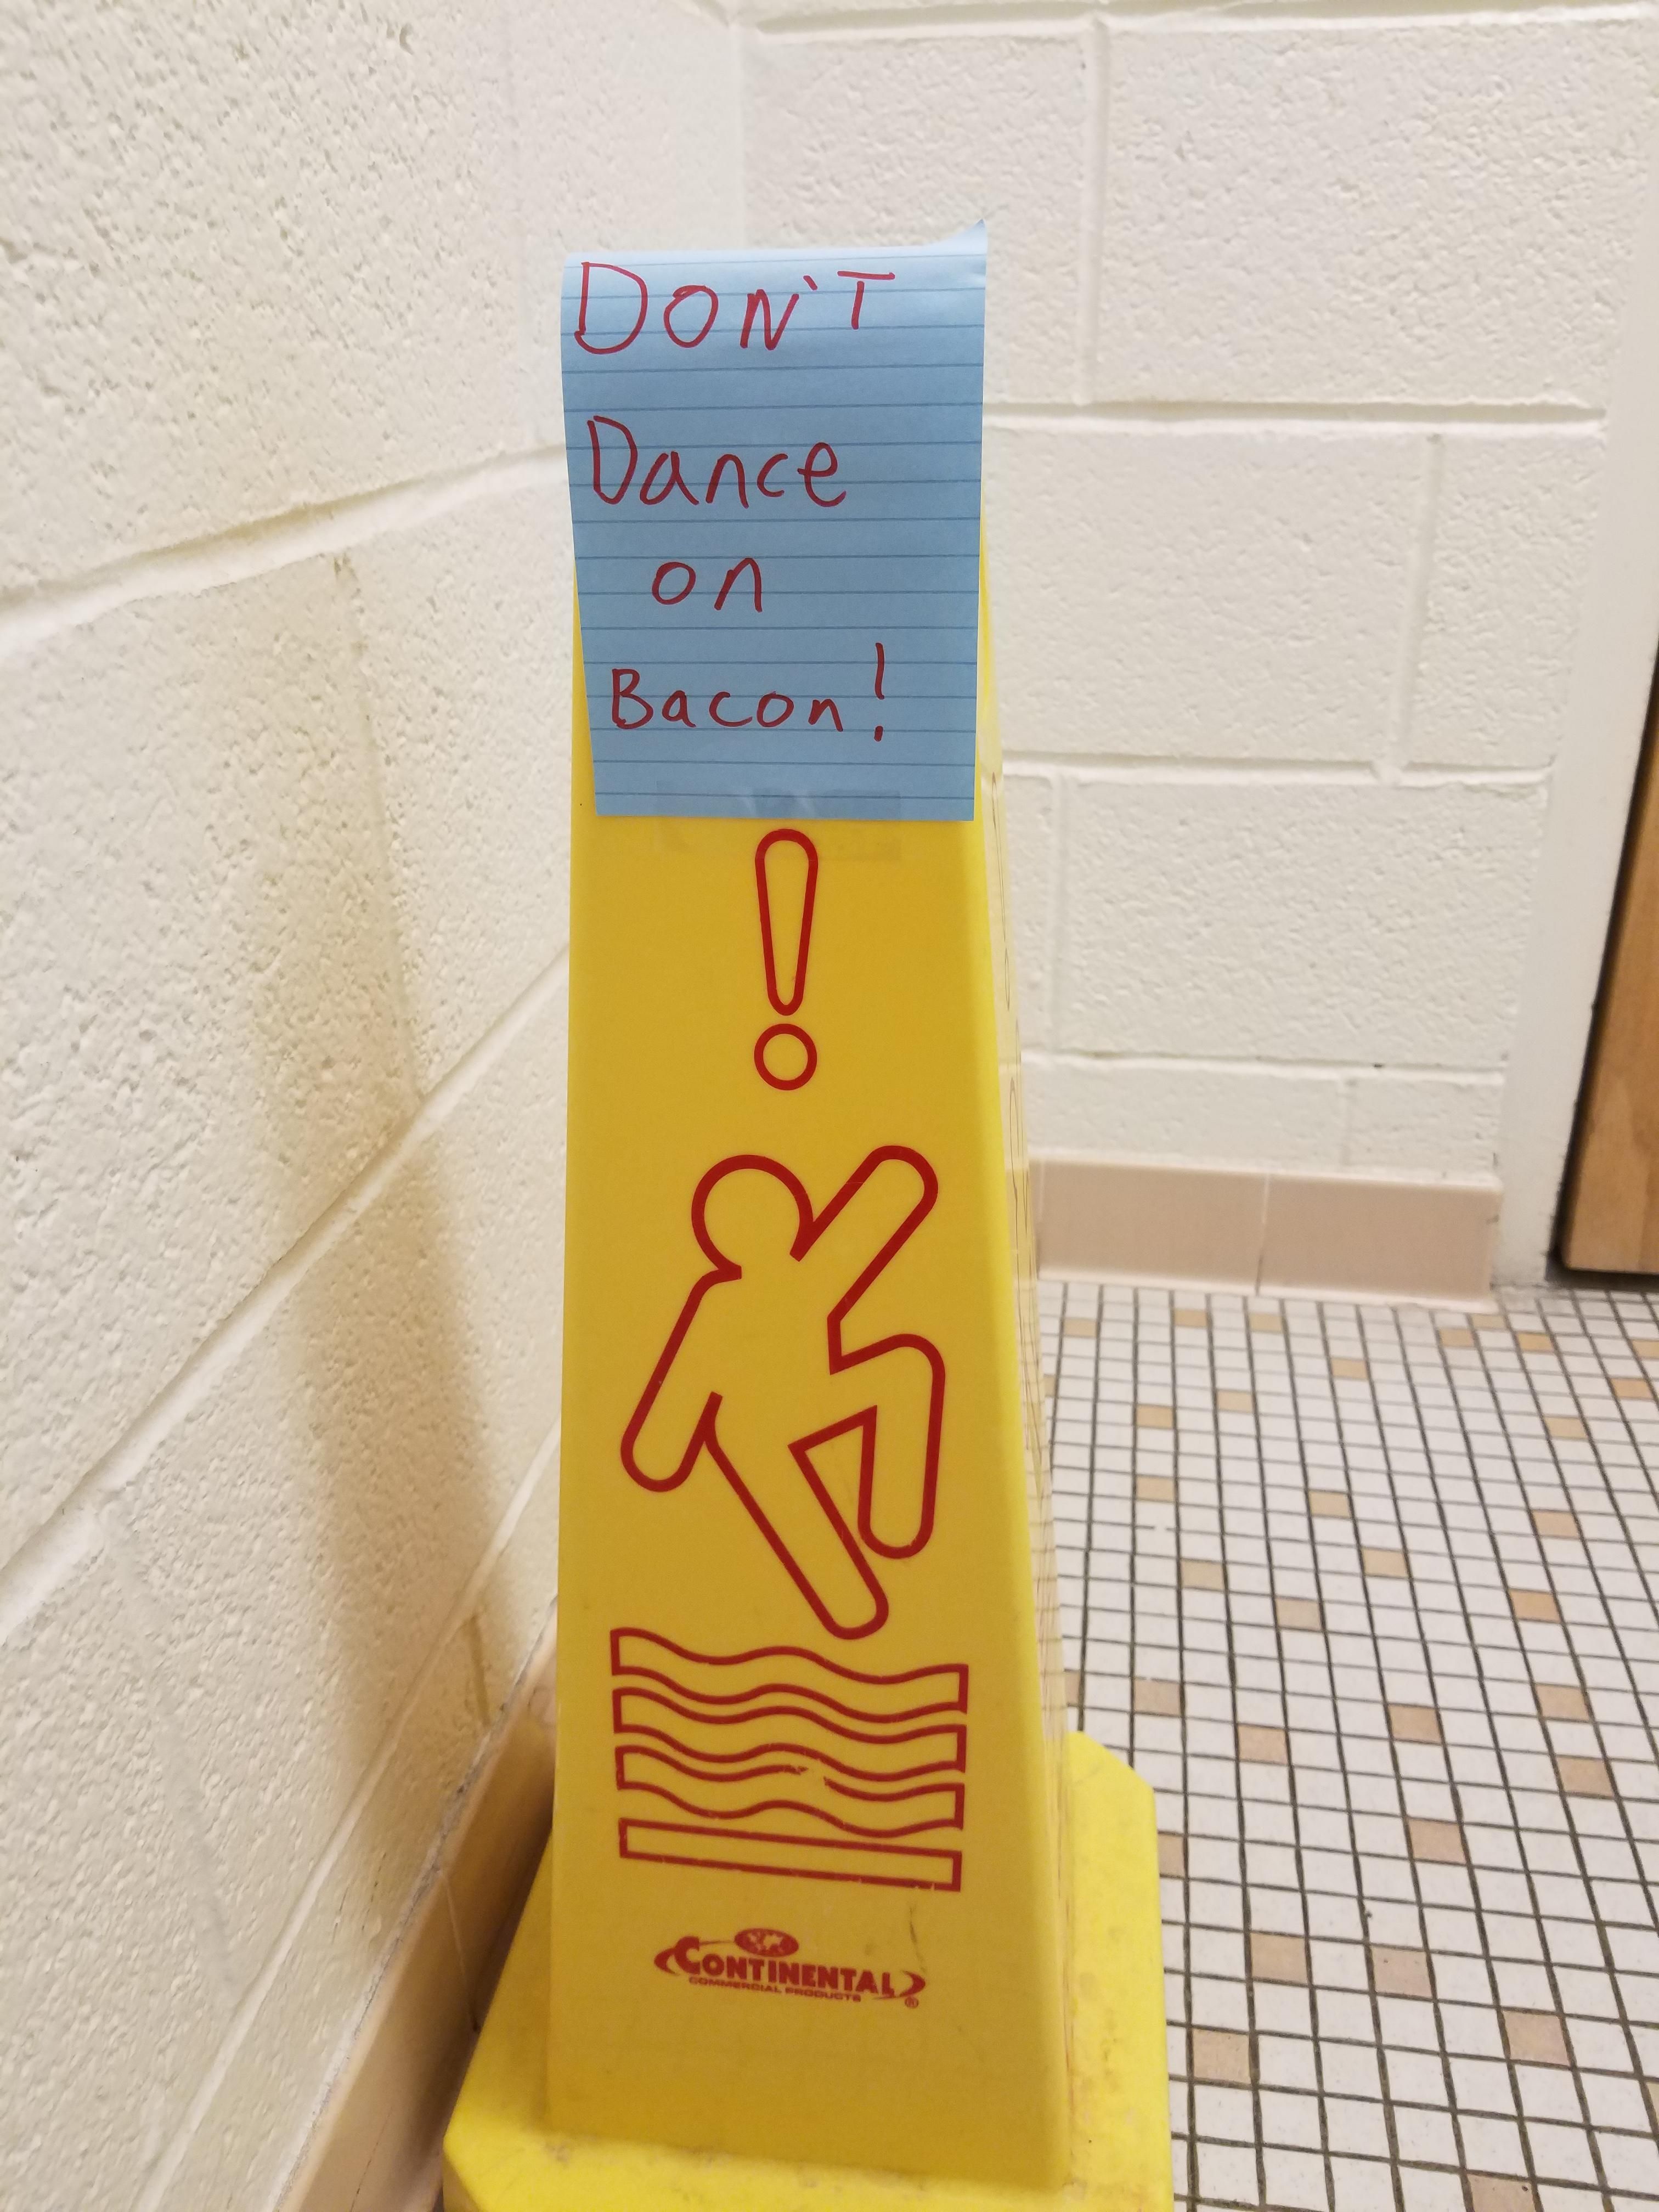 DON'T
Dance
on
Bacon!
!
CONTINENTAL
COMMERCIAL PRODUCTS
®